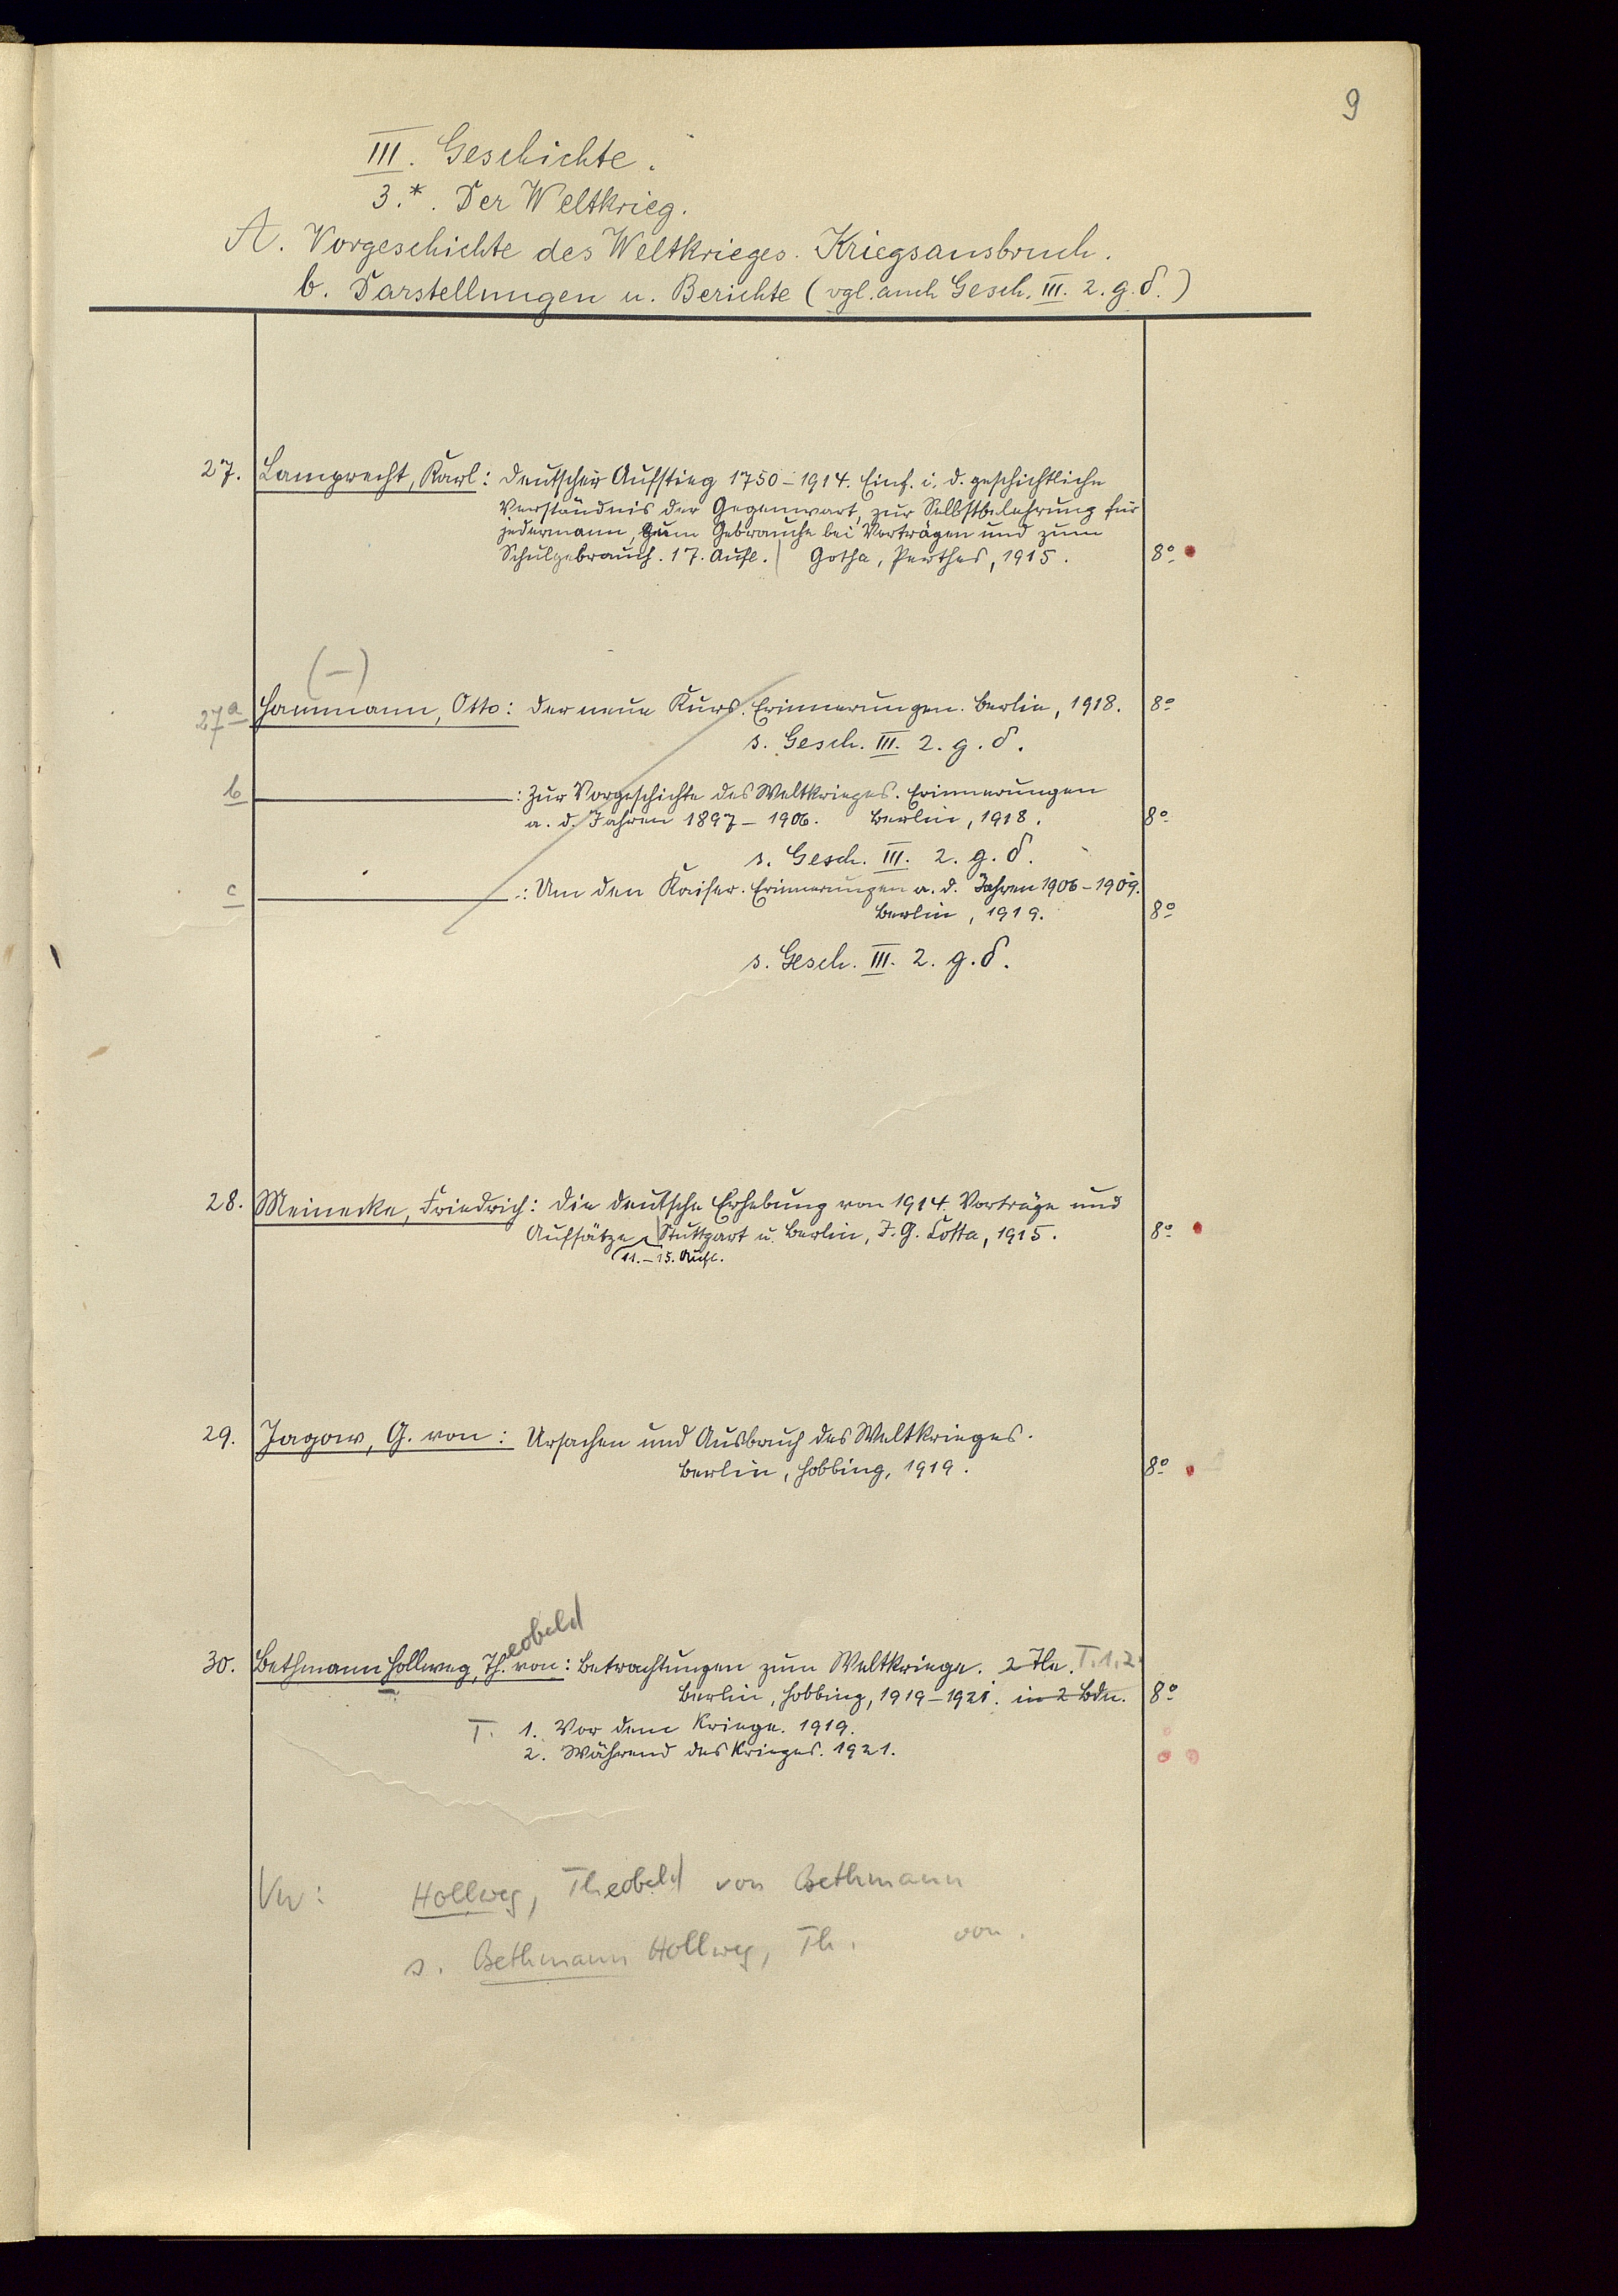 9
III. Geschichte.
3.*. Der Weltkrieg.
A. Vorgeschichte des Weltkrieges. Kriegsausbruch.
b. Darstellungen u. Berichte (vgl. auch Gesch. III. 2. g. δ.)
27. Lamprecht, Karl: Deutscher Aufstieg 1750-1914. Einf. i. d. geschichtliche
Verständnis der Gegenwart, zur Selbstbelehrung für
jedermann, zum Gebrauche bei Vorträgen und zum
Schulgebrauch. 17. Aufl. | Gotha, Perthes, 1915. 8º
(-)
27a Hammann, Otto: Der neue Kurs. Erinnerungen. Berlin, 1918. 8º
s. Gesch. III. 2. g. δ.
b : Zur Vorgeschichte des Weltkrieges. Erinnerungen
a. d. Jahren 1897-1906. Berlin, 1918. 8º
s. Gesch. III. 2. g. δ.
c : Um den Kaiser. Erinnerungen a. d. Jahren 1906-1909.
Berlin, 1919. 8º
s. Gesch. III. 2. g. δ.
28. Meinecke, Friedrich: Die deutsche Erhebung von 1914. Vorträge und
Aufsätze. | Stuttgart u. Berlin, J. G. Cotta, 1915. 8º
11.-15. Aufl.
29. Jagow, G. von: Ursachen und Ausbruch des Weltkrieges.
Berlin, Hobbing, 1919. 8º
eobald
30. Bethmann Hollweg, Th. von: Betrachtungen zum Weltkriege. 2 Tle. T. 1.2.
Berlin, Hobbing, 1919-1921. in 2 Bdn. 8º
T. 1. Vor dem Kriege. 1919.
2. Während des Krieges. 1921.
Vw: Hollweg, Theobald von Bethmann
s. Bethmann Hollweg, Th. von.